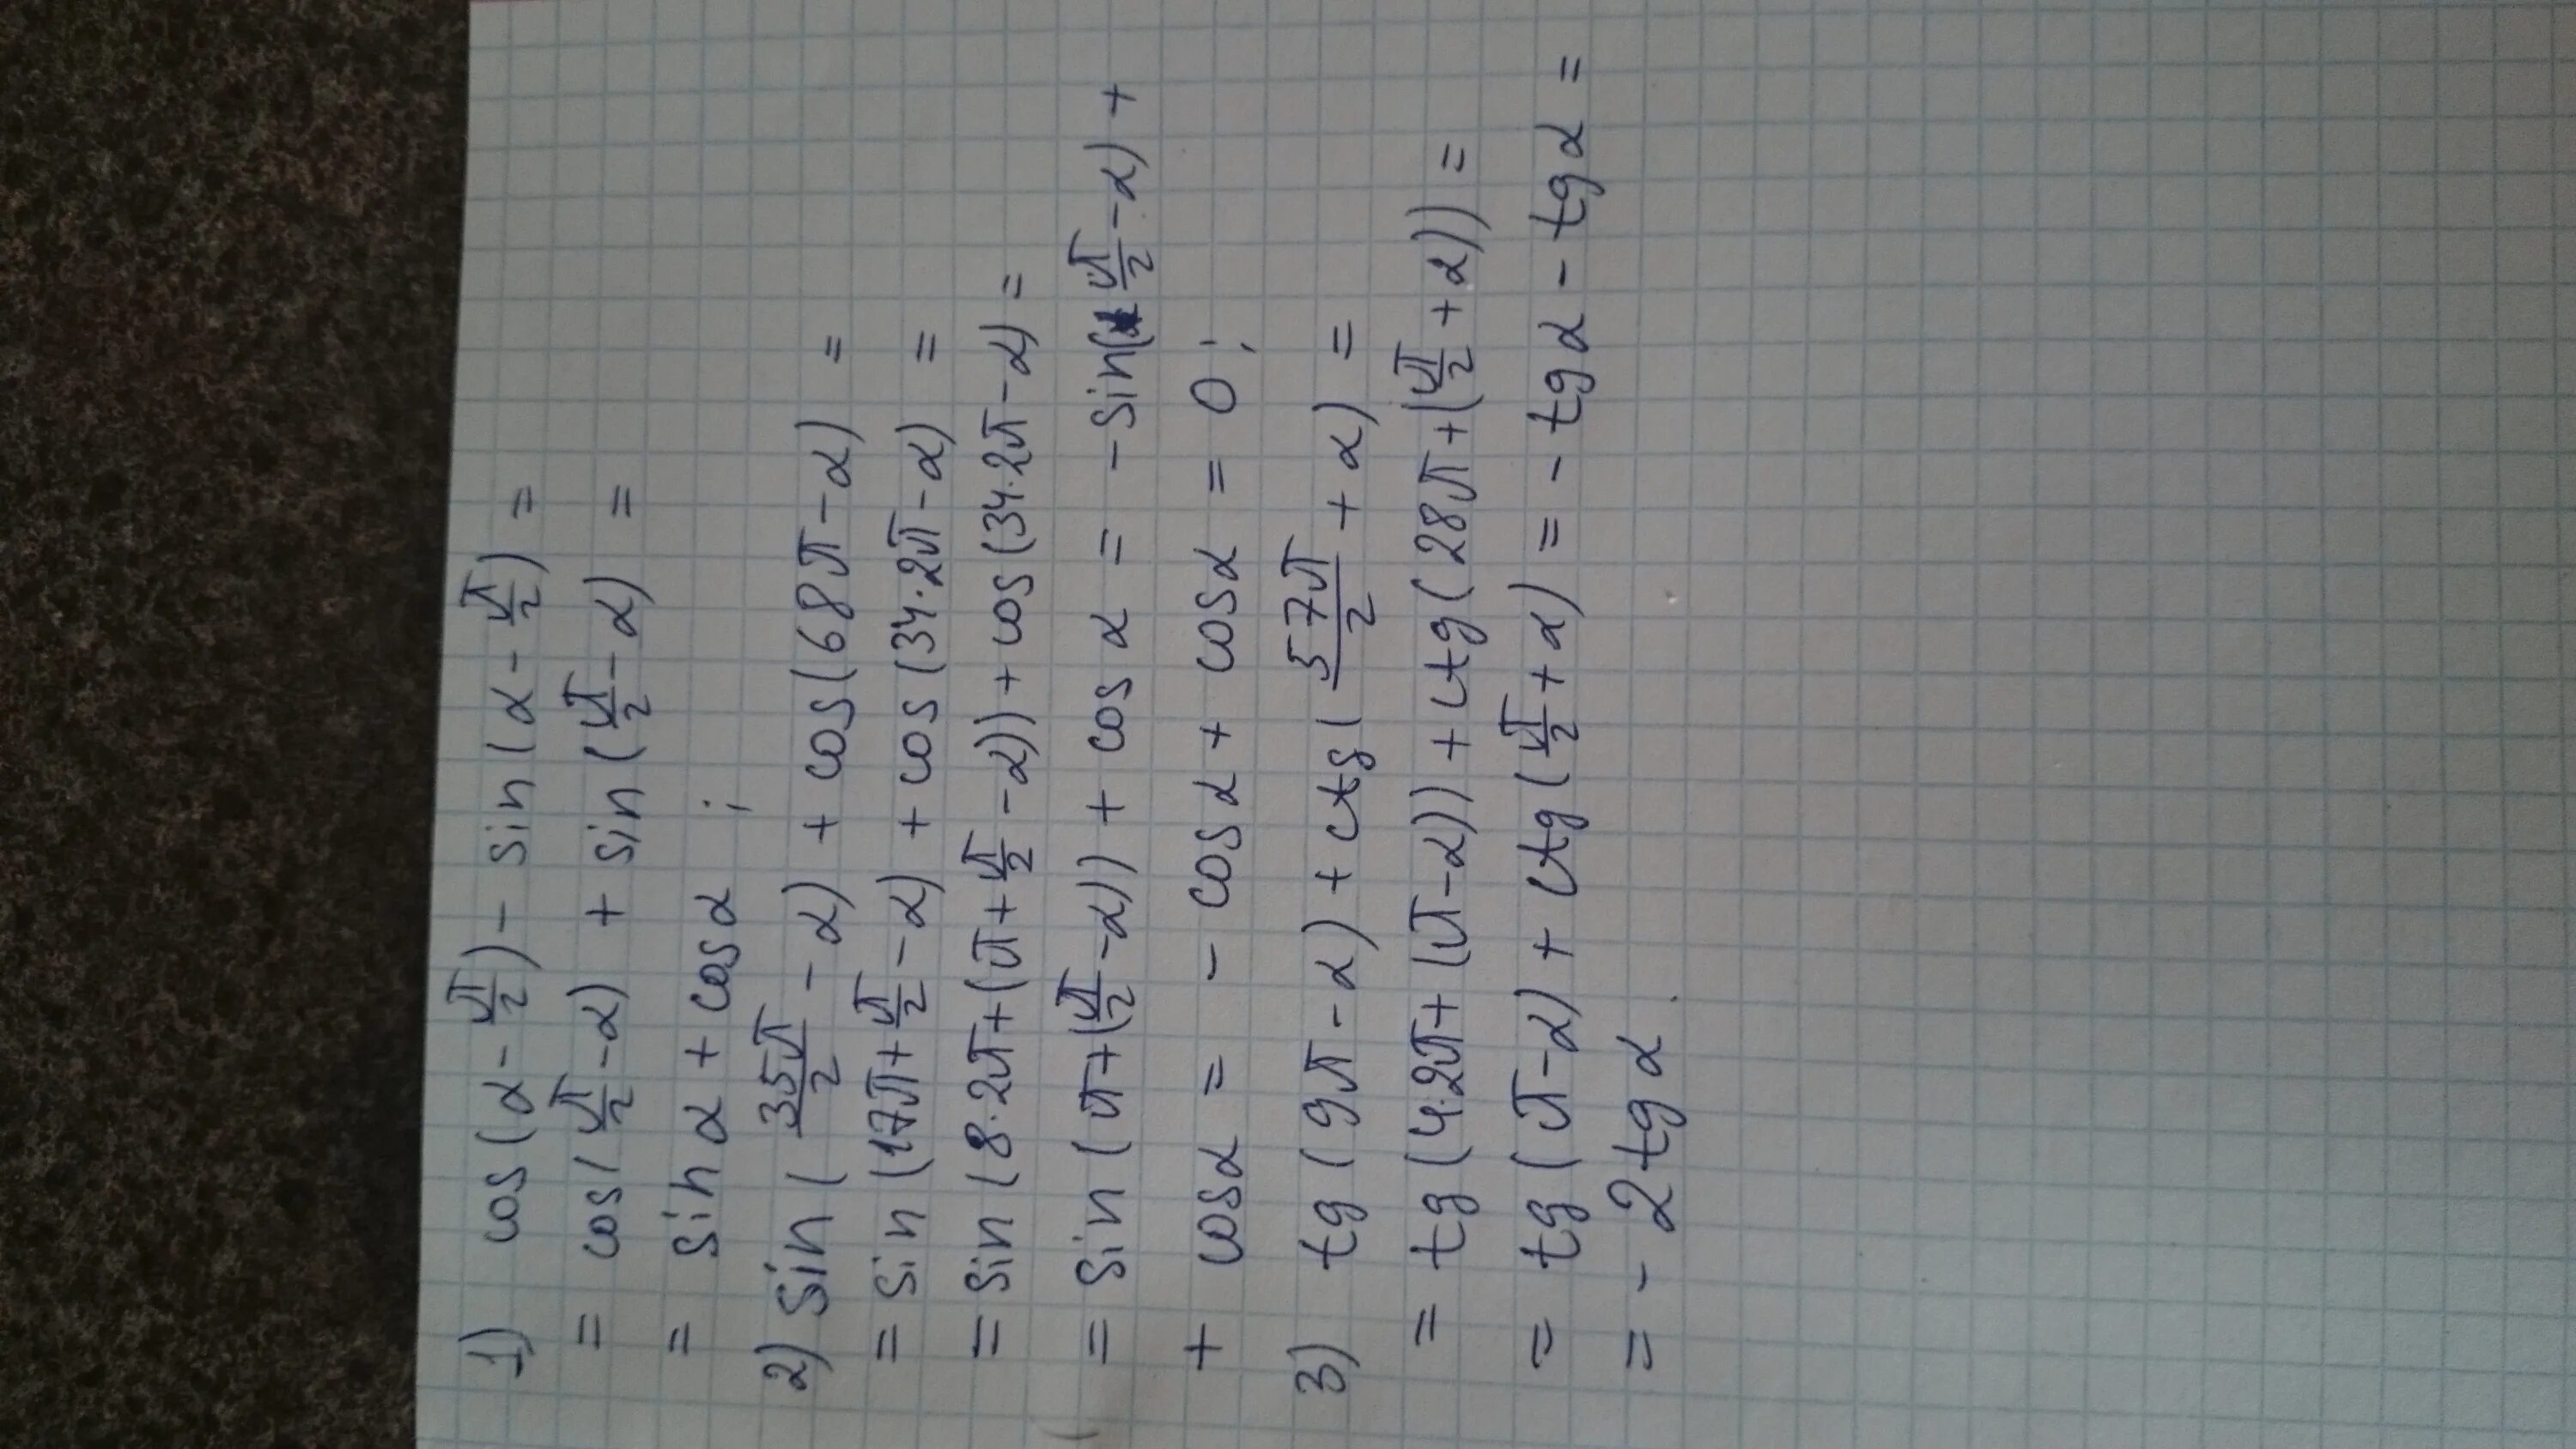 1) cos(α - π/2) - sin(α - π/2) =
= cos(π/2 - α) + sin(π/2 - α) =
= sin α + cos α ;
2) sin(35π/2 - α) + cos(68π - α) =
= sin(17π + π/2 - α) + cos(34·2π - α) =
= sin(8·2π + (π + π/2 - α)) + cos(34·2π - α) =
= sin(π + (π/2 - α)) + cos α = - sin(π/2 - α) +
+ cos α = - cos α + cos α = 0 ;
3) tg(9π - α) + ctg(57π/2 + α) =
= tg(4·2π + (π - α)) + ctg(28π + (π/2 + α)) =
= tg(π - α) + ctg(π/2 + α) = - tg α - tg α =
= - 2 tg α.